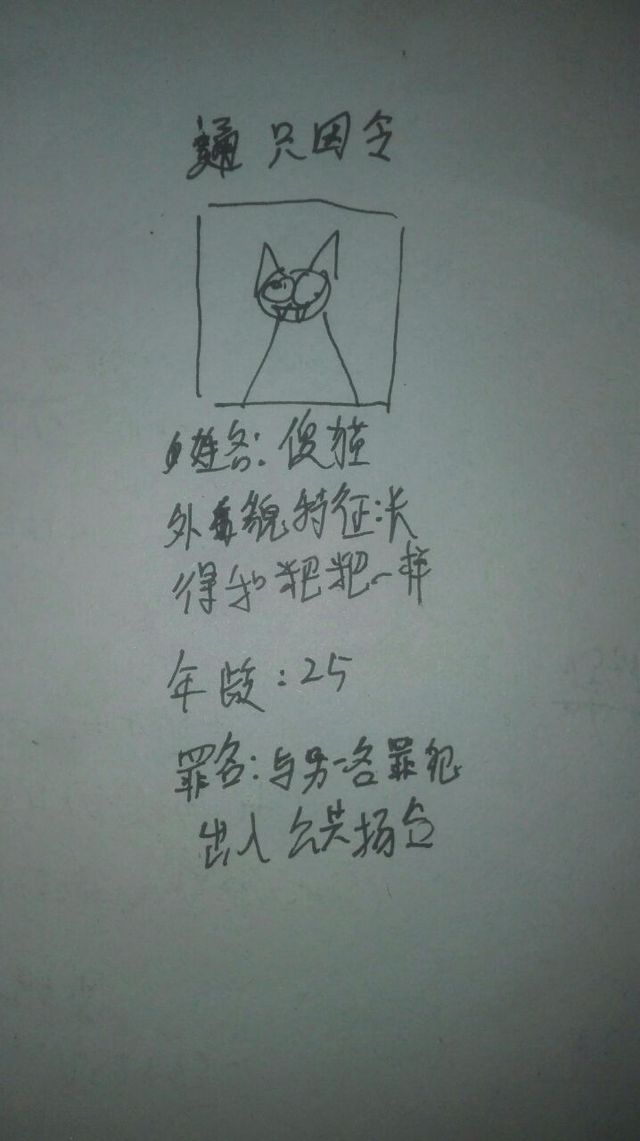 通 只因令
姓名:傻猫
外貌特征:长
得和粑粑一样
年龄:25
罪名:与另一名罪犯
出入公共场合